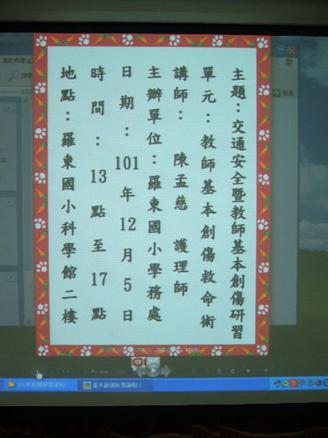 主題：交通安全暨教師基本創傷研習
單元：教師基本創傷救命術
講師： 陳孟慈 護理師
主辦單位：羅東國小學務處
日期：101年12月5日
時間：13點至17點
地點：羅東國小科學館二樓